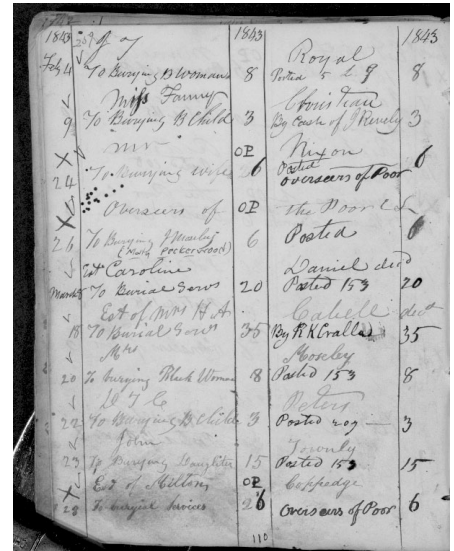 1843 1843 1843
Royal
Feb 4 To Burying B Woman 8 Posted 8
Miss Fanny Christian
9 To Burying B Child 3 By Cash of J 3
Mr OP Nixon
24 To Burying wife 6 Posted 6
Overseers of Poor
Overseers of OP the Poor
26 To Burying J 6 Posted 6
Est Caroline Daniel decd
March To Burial Serv 20 Posted 153 20
Est of Mrs H A Cabell decd
18 To Burial Serv 35 By R K Cralle 35
Mrs Mosely
20 To burying Black Woman 8 Posted 153 8
Peters
22 To Burying B Child 3 Posted 209 3
John Townly
23 To Burying Daughter 15 Posted 153 15
Est of Milton OP Coppedge
28 To burial service 6 Overseers of Poor 6
110